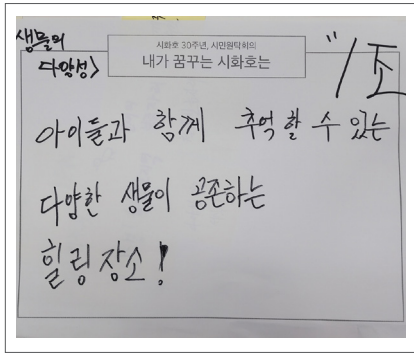 생물의
다양성>
시화호 30주년, 시민원탁회의
내가 꿈꾸는 시화호는
"1조
아이들과 함께 추억할 수 있는
다양한 생물이 공존하는
힐링장소!